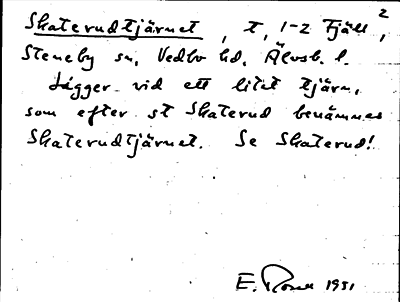 Skaterudtjärnet, t, 1-2 Fjäll, 2
Steneby sn, Vedbo hd, Älvsb. l.
Ligger vid ett litet tjärn,
som efter st Skaterud benämnes
Skaterudtjärnet. Se Skaterud!
E. Rosell 1951